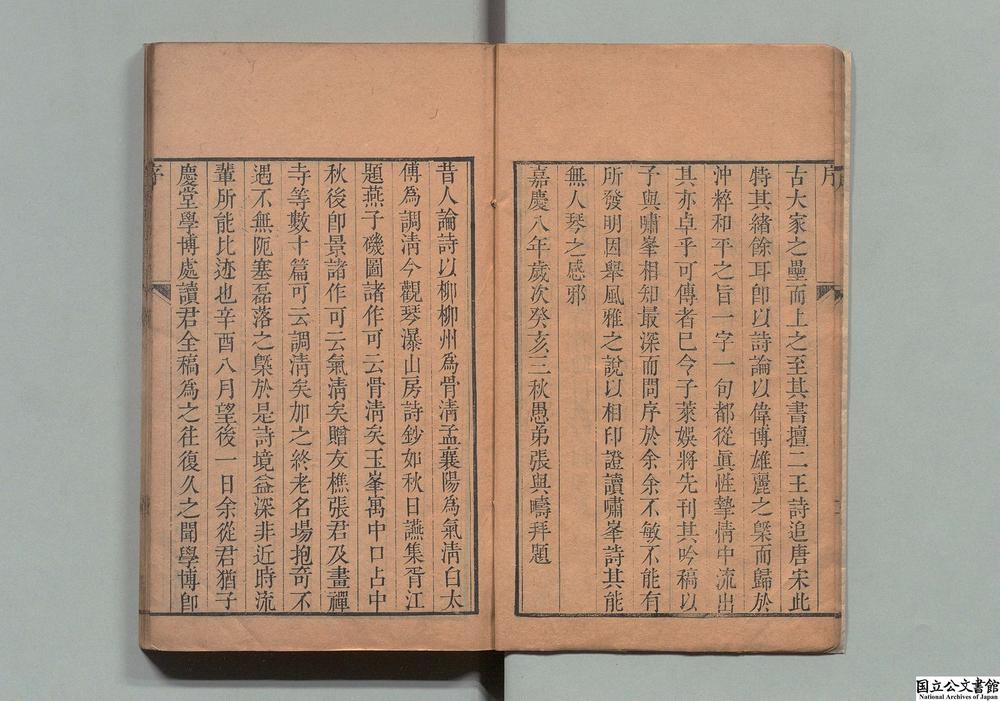 序
古大家之壘而上之至其書擅二王詩追唐宋此
特其緒餘耳卽以詩論以偉博雄麗之槩而歸於
沖粹和平之旨一字一句都從眞性摯情中流出
其亦卓乎可傳者已今子萊娛將先刊其吟稿以
子與嘯峯相知最深而問序於余余不敏不能有
所發明因舉風雅之說以相印證讀嘯峯詩其能
無人琴之感邪
嘉慶八年歲次癸亥三秋愚弟張與疇拜題
昔人論詩以柳柳州爲骨淸孟襄陽爲氣淸白太
傅爲調淸今觀琴瀑山房詩鈔如秋日讌集胥江
題燕子磯圖諸作可云骨淸矣玉峯寓中口占中
秋後卽景諸作可云氣淸矣贈友樵張君及畫禪
寺等數十篇可云調淸矣加之終老名場抱奇不
遇不無阨塞磊落之槩於是詩境益深非近時流
輩所能比迹也辛酉八月望後一日余從君猶子
慶堂學博處讀君全稿爲之往復久之聞學博卽
序
国立公文書館
National Archives of Japan